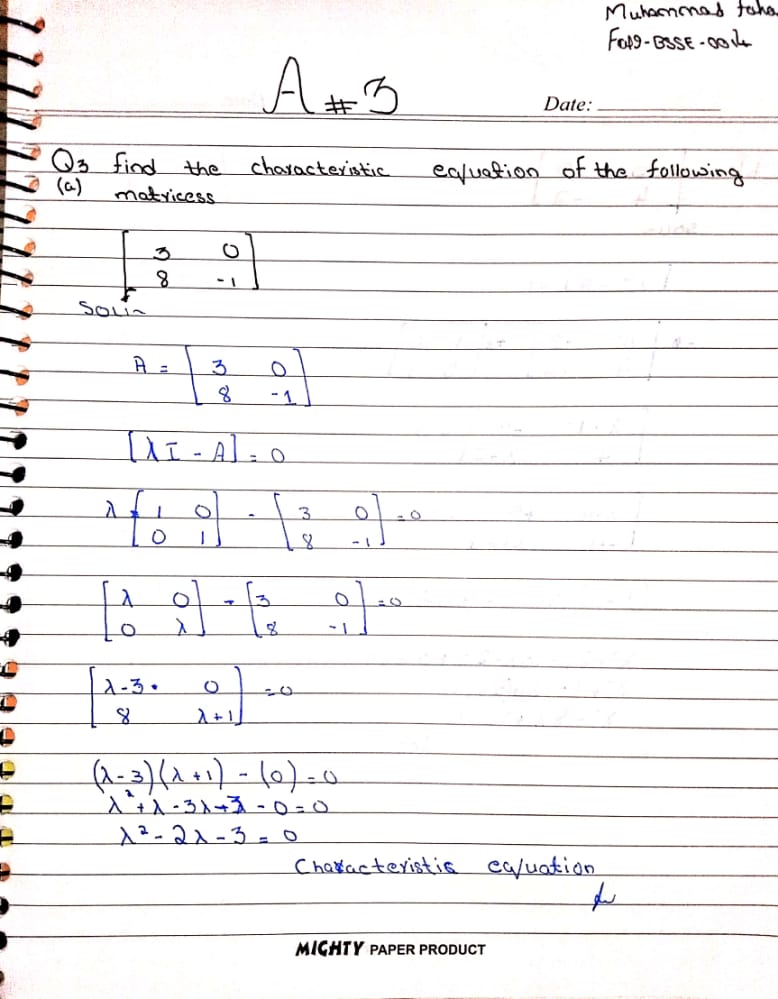 Muhammad taha
Fa19-BSSE-0014
A #3
Date:
Q3 find the characteristic eq/uation of the following
(a) matricess
[ 3 0
8 -1 ]
Sol:-
A = [ 3 0
8 -1 ]
[λI - A] = 0
λ [ 1 0
0 1 ] - [ 3 0
8 -1 ] = 0
[ λ 0
0 λ ] - [ 3 0
8 -1 ] = 0
[ λ-3 0
8 λ+1 ] = 0
(λ-3)(λ+1) - (0) = 0
λ² + λ - 3λ - 3 - 0 = 0
λ² - 2λ - 3 = 0
Characteristic eq/uation
MIGHTY PAPER PRODUCT